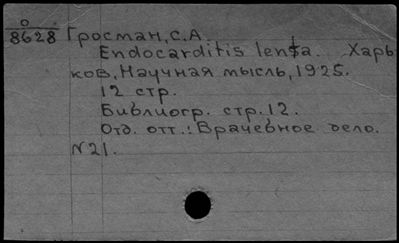 0
8628 Гросман, С.А.
Endocarditis lenta. Харь-
ков, Научная мысль, 1925.
12 стр.
Библиогр. стр. 12.
Отд. отт.: Врачебное дело.
N21.